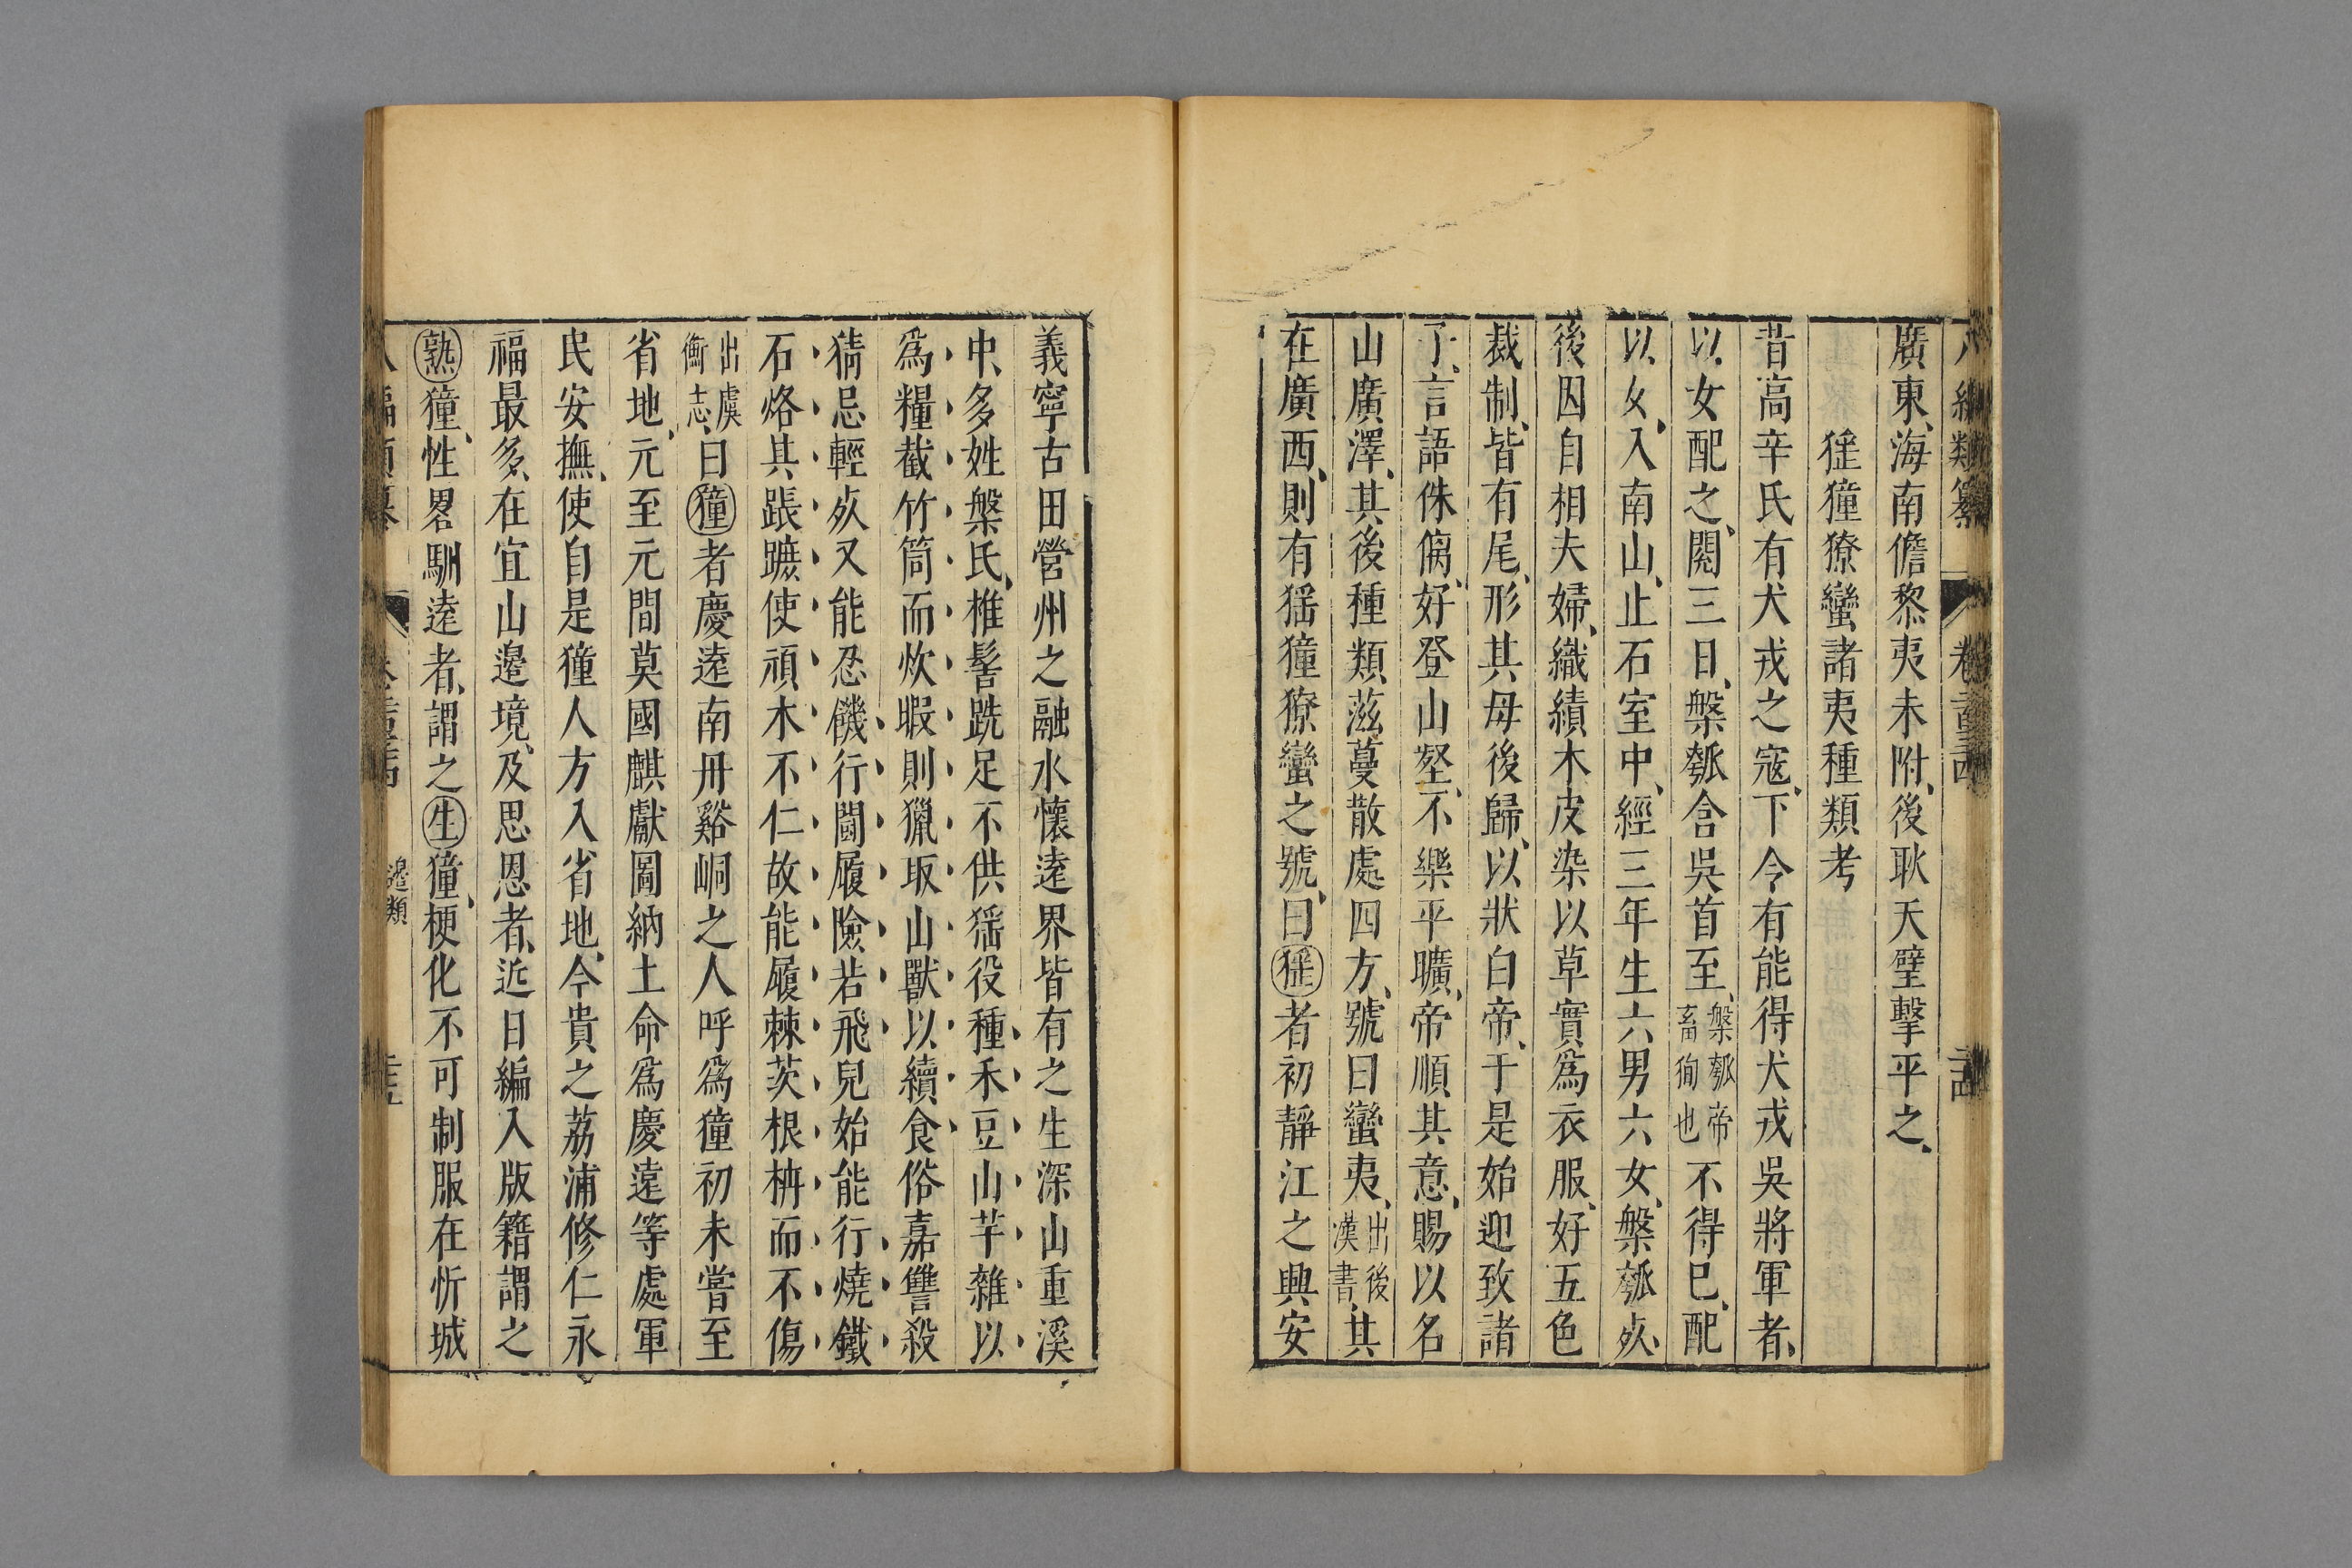 廣東、海南儋黎夷未附、後耿天璧擊平之、
猺獞獠蠻諸夷種類考
昔高辛氏有犬戎之寇、下令有能得犬戎吳將軍者、
以女配之、閱三日、槃瓠含吳首至、槃瓠帝畜狗也不得已、配
以女、入南山、止石室中、經三年生六男六女、槃瓠死、
後因自相夫婦、織績木皮染以草實爲衣服、好五色
裁制、皆有尾、形其母後歸、以狀白帝、于是始迎致諸
子、言語侏𠌯、好登山壑、不樂平曠、帝順其意、賜以名
山廣澤、其後種類滋蔓散處四方、號曰蠻夷、出後漢書、其
在廣西、則有猺獞獠蠻之號、曰猺者初靜江之興安
義寧古田營州之融水懷遠界皆有之生深山重溪
中、多姓槃氏、椎髻跣足不供猺役種禾豆山芋雜以
爲糧截竹筒而炊暇則獵取山獸以續食俗嘉讐殺
猜忌輕死又能忍饑行鬪履險若飛兒始能行燒鐵
石烙其踉蹠使頑木不仁故能履棘茨根枿而不傷
出虞衡志、曰獞者慶遠南丹谿峒之人呼爲獞初未嘗至
省地、元至元間莫國麒獻圖納土命爲慶遠等處軍
民安撫、使自是獞人方入省地、今貴之荔浦修仁永
福最多、在宜山邊境、及思恩者、近日編入版籍謂之
熟獞、性畧馴遠者、謂之生獞、梗化不可制服在忻城
邊類